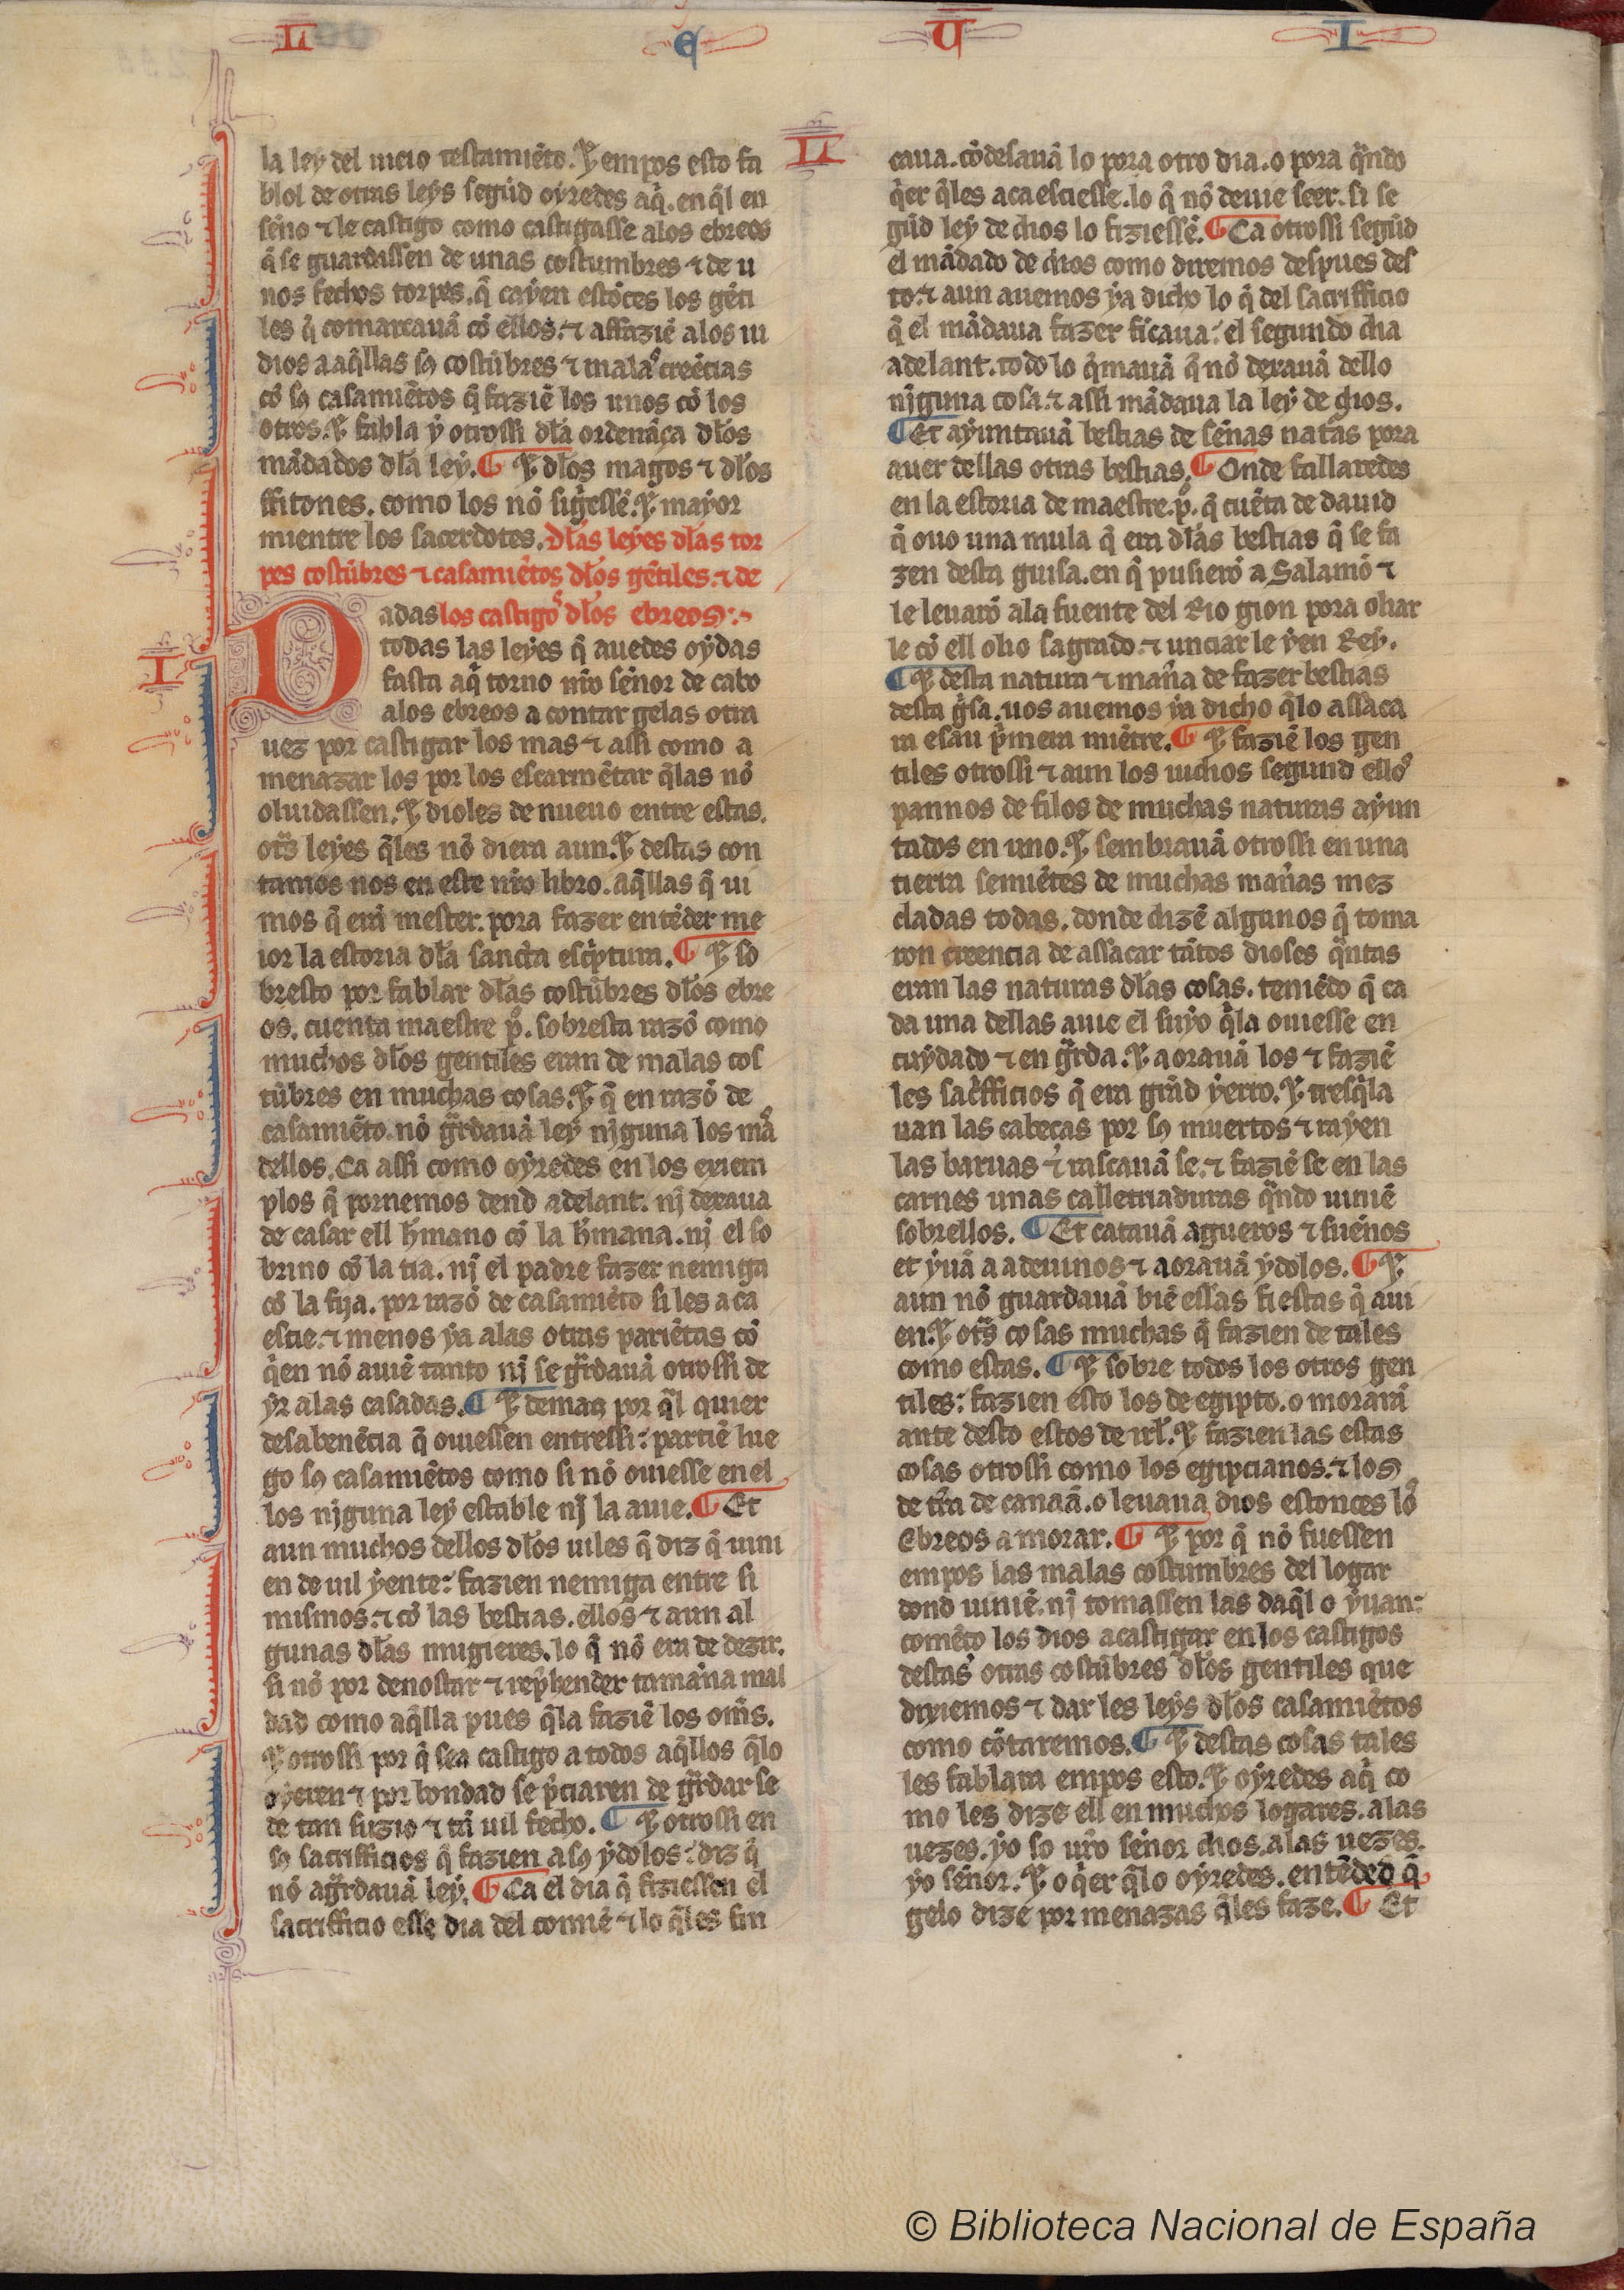 L E U I
la ley del uieio testamiẽto. ⁊ empos esto fa
blol de otras leys segũd oyredes aq̃. en q̃l en
sẽno ⁊ le castigo como castigasse alos ebreos
q̃ se guardassen de unas costumbres ⁊ de u
nos fechos torpes. q̃ cayen estõces los gẽti
les q̃ comarcauã cõ ellos. ⁊ affaziẽ alos iu
dios a aq̃llas sus costũbres ⁊ malas creẽcias
cõ sus casamiẽtos q̃ faziẽ los unos cõ los
otros. ⁊ fabla y otrossi dła ordenãça dłos
mãdados dła ley. ¶ ⁊ dłos magos ⁊ dłos
ffitones. como los nõ sigessẽ. ⁊ mayor
mientre los sacerdotes. Dłas leyes dłas tor
pes costũbres ⁊ casamiẽtos dłos gẽtiles. ⁊ de
los castigos dłos ebreos:~
I
Dadas
todas las leyes q̃ auedes oydas
fasta aq̃ torno nr̃o sẽnor de cabo
alos ebreos a contar gelas otra
uez por castigar los mas ⁊ assi como a
menazar los por los escarmẽtar q̃las nõ
oluidassen. ⁊ dioles de nueuo entre estas.
otr̃s leyes q̃les nõ diera aun. ⁊ destas con
tamos nos en este nr̃o libro. aq̃llas q̃ ui
mos q̃ erã mester. pora fazer entẽder me
ior la estoria dła sancta esc̃ptura. ¶ ⁊ so
bresto por fablar dłas costũbres dłos ebre
os. cuenta maestre p̃. sobresta razõ como
muchos dłos gentiles eran de malas cos
tũbres en muchas cosas. ⁊ q̃ en razõ de
casamiẽto. nõ gr̃dauã ley nįguna los mas
dellos. Ca assi como oyredes en los exiem
plos q̃ pornemos dend adelant. nį dexaua
de casar ell h̃mano cõ la h̃mana. nį el so
brino cõ la tia. nį el padre fazer nemiga
cõ la fija. por razõ de casamiẽto si les aca
escie. ⁊ menos ya alas otras pariẽtas cõ
q̃en nõ auiẽ tanto nį se gr̃dauã otrossi de
yr alas casadas. ¶ ⁊ demas por q̃l quier
desabenẽcia q̃ ouiessen entressi: partiẽ lue
go sus casamiẽtos como si nõ ouiesse en el
los nįguna ley estable nį la auie. ¶ Et
aun muchos dellos dłos uiles q̃ diz q̃ uini
en de uil yente: fazien nemiga entre si
mismos. ⁊ cõ las bestias. ellos ⁊ aun al
gunas dłas mugieres. lo q̃ nõ era de dezir.
si nõ por denostar ⁊ rep̃hender tamãna mal
dad como aq̃lla pues q̃la faziẽ los om̃s.
⁊ otrossi por q̃ sea castigo a todos aq̃llos q̃lo
oyeren ⁊ por bondad se p̃ciaren de gr̃dar se
de tan suzio ⁊ tã uil fecho. ¶ ⁊ otrossi en
sus sacrifficios q̃ fazien a sus ydolos: diz q̃
nõ agr̃dauã ley. ¶ Ca el dia q̃ fiziessen el
sacrifficio esse dia del comiẽ ⁊ lo q̃les fin
II
caua. cõdesauã lo pora otro dia. o pora q̃ndo
q̃er q̃les acaesciesse. lo q̃ nõ deuie seer. si se
gũd ley de dios lo fiziessẽ. ¶ Ca otrossi segũd
el mãdado de dios como diremos despues des
to. ⁊ aun auemos ya dicho lo q̃ del sacrifficio
q̃ el mãdaua fazer ficaua: el segundo dia
adelant. todo lo q̃mauã q̃ nõ dexauã dello
nįguna cosa. ⁊ assi mãdaua la ley de dios.
¶ Et ayuntauã bestias de sẽnas natas pora
auer dellas otras bestias. ¶ Onde fallaredes
en la estoria de maestre. p̃. q̃ cuẽta de dauid
q̃ ouo una mula q̃ era dłas bestias q̃ se fa
zen desta guisa. en q̃ pusierõ a Salamõ ⁊
le leuarõ ala fuente del Rio gion pora oliar
le cõ ell olio sagrado. ⁊ unciar le yen Rey.
¶ ⁊ desta natura ⁊ mañra de fazer bestias
desta g̃sa. uos auemos ia dicho q̃lo assaca
ra esau p̃mera miẽtre. ¶ ⁊ faziẽ los gen
tiles otrossi ⁊ aun los iudios segund ellos
pannos de filos de muchas naturas ayun
tados en uno. ⁊ sembrauã otrossi en una
tierra semiẽtes de muchas mañas mez
cladas todas. donde dizẽ algunos q̃ toma
ron creencia de assacar tãtos dioses q̃ntas
eran las naturas dłas cosas. teniẽdo q̃ ca
da una dellas auie el suyo q̃la ouiesse en
cuydado ⁊ en gr̃da. ⁊ aorauã los ⁊ faziẽ
les sac̃fficios q̃ era grãd yerro. ⁊ tresq̃la
uan las cabeças por sus muertos ⁊ rayen
las baruas ⁊ rascauã se. ⁊ faziẽ se en las
carnes unas calletriaduras q̃ndo uiniẽ
sobrellos. ¶ Et catauã agueros ⁊ suẽnos
et yuã a adeuinos ⁊ aorauã ydolos. ¶ ⁊
aun nõ guardauã biẽ essas fiestas q̃ aui
en. ⁊ otr̃s cosas muchas q̃ fazien de tales
como estas. ¶ ⁊ sobre todos los otros gen
tiles: fazien esto los de egipto. o morarã
ante desto estos de irł. ⁊ fazien las estas
cosas otrossi como los egipcianos. ⁊ los
de tr̃ra de canaã. o leuaua dios estonces los
Ebreos a morar. ¶ ⁊ por q̃ nõ fuessen
empos las malas costumbres del logar
dond uiniẽ. nį tomassen las daq̃l o yuan:
comẽço los dios a castigar en los castigos
destas otras costũbres dłos gentiles que
dixiemos ⁊ dar les leys dłos casamiẽtos
como cõtaremos. ¶ ⁊ destas cosas tales
les fablara empos esto. ⁊ oyredes aq̃ co
mo les dize ell en muchos logares. alas
uezes. yo so ur̃o sẽnor dios. alas uezes.
yo sẽnor. ⁊ o q̃er q̃lo oyredes. entẽded q̃
gelo dize por menazas q̃les faze. ¶ Et
© Biblioteca Nacional de España